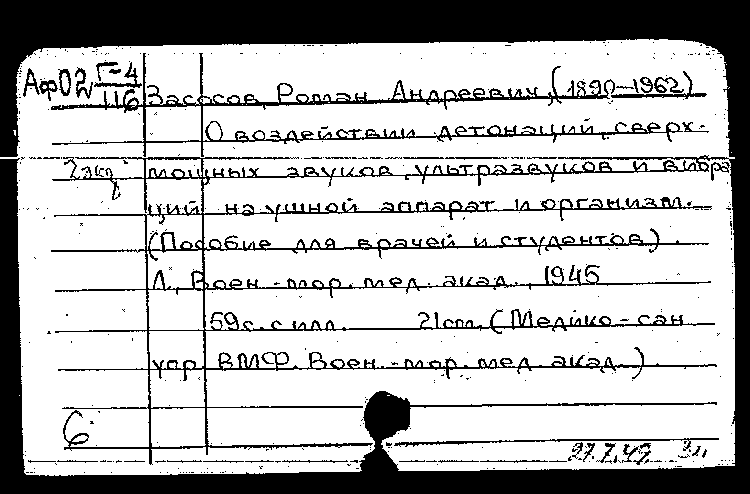 Аф02 Г-4
116
Засосов, Роман Андреевич, (1890-1962)
О воздействии детонаций, сверх-
2 экз
мощных звуков, ультразвуков и вибра
ций на ушной аппарат и организм.
(Пособие для врачей и студентов).
Л., Воен.-мор. мед. акад., 1945
59с. с илл. 21см. (Медико-сан
упр. ВМФ. Воен.-мор. мед. акад.)
6
27.7.49